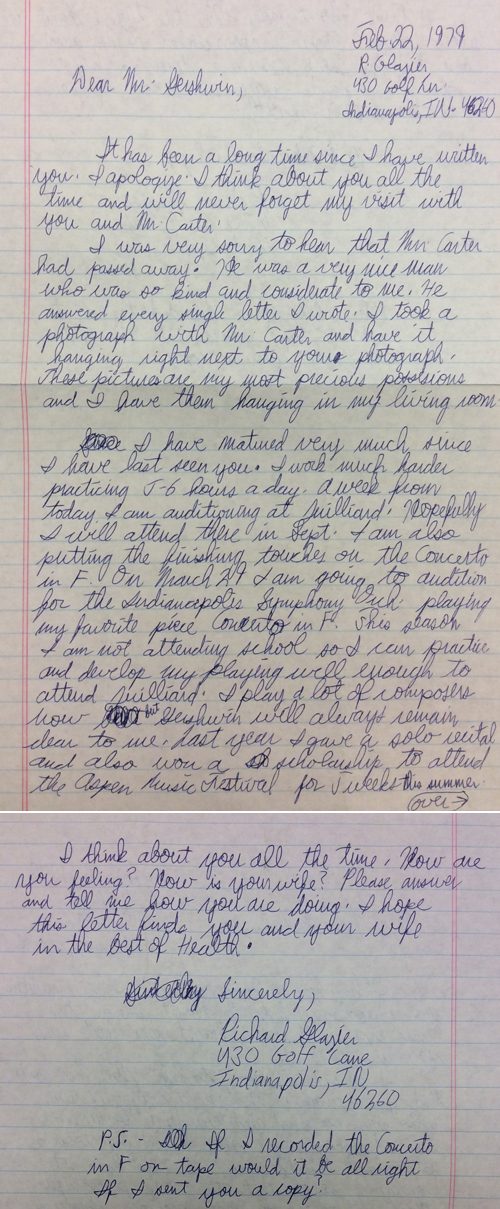 Feb. 22, 1979
R. Glazier
430 Golf Ln.
Indianapolis, IN. 46260
Dear Mr. Gershwin,
It has been a long time since I have written
you. I apologize. I think about you all the
time and will never forget my visit with
you and Mr. Carter.
I was very sorry to hear that Mr. Carter
had passed away. He was a very nice man
who was so kind and considerate to me. He
answered every single letter I wrote. I took a
photograph with Mr. Carter and have it
hanging right next to your photograph.
These pictures are my most precious possesions
and I have them hanging in my living room.
I have matured very much since
I have last seen you. I work much harder
practicing 5-6 hours a day. A week from
today I am auditioning at Juilliard. Hopefully
I will attend there in Sept. I am also
putting the finishing touches on the Concerto
in F. On March 29 I am going to audition
for the Indianapolis Symphony Orch. playing
my favorite piece Concerto in F. This season
I am not attending school so I can practice
and develop my playing well enough to
attend Juilliard. I play a lot of composers
now but Gershwin will always remain
dear to me. Last year I gave a solo recital
and also won a scholarship to attend
the Aspen Music Festival for 5 weeks this summer.
(over→)
I think about you all the time. How are
you feeling? How is your wife? Please answer
and tell me how you are doing. I hope
this letter finds you and your wife
in the Best of Health.
Sincerely,
Richard Glazier
430 Golf Lane
Indianapolis, IN
46260
P.S. - If I recorded the Concerto
in F on tape would it be all right
If I sent you a copy?